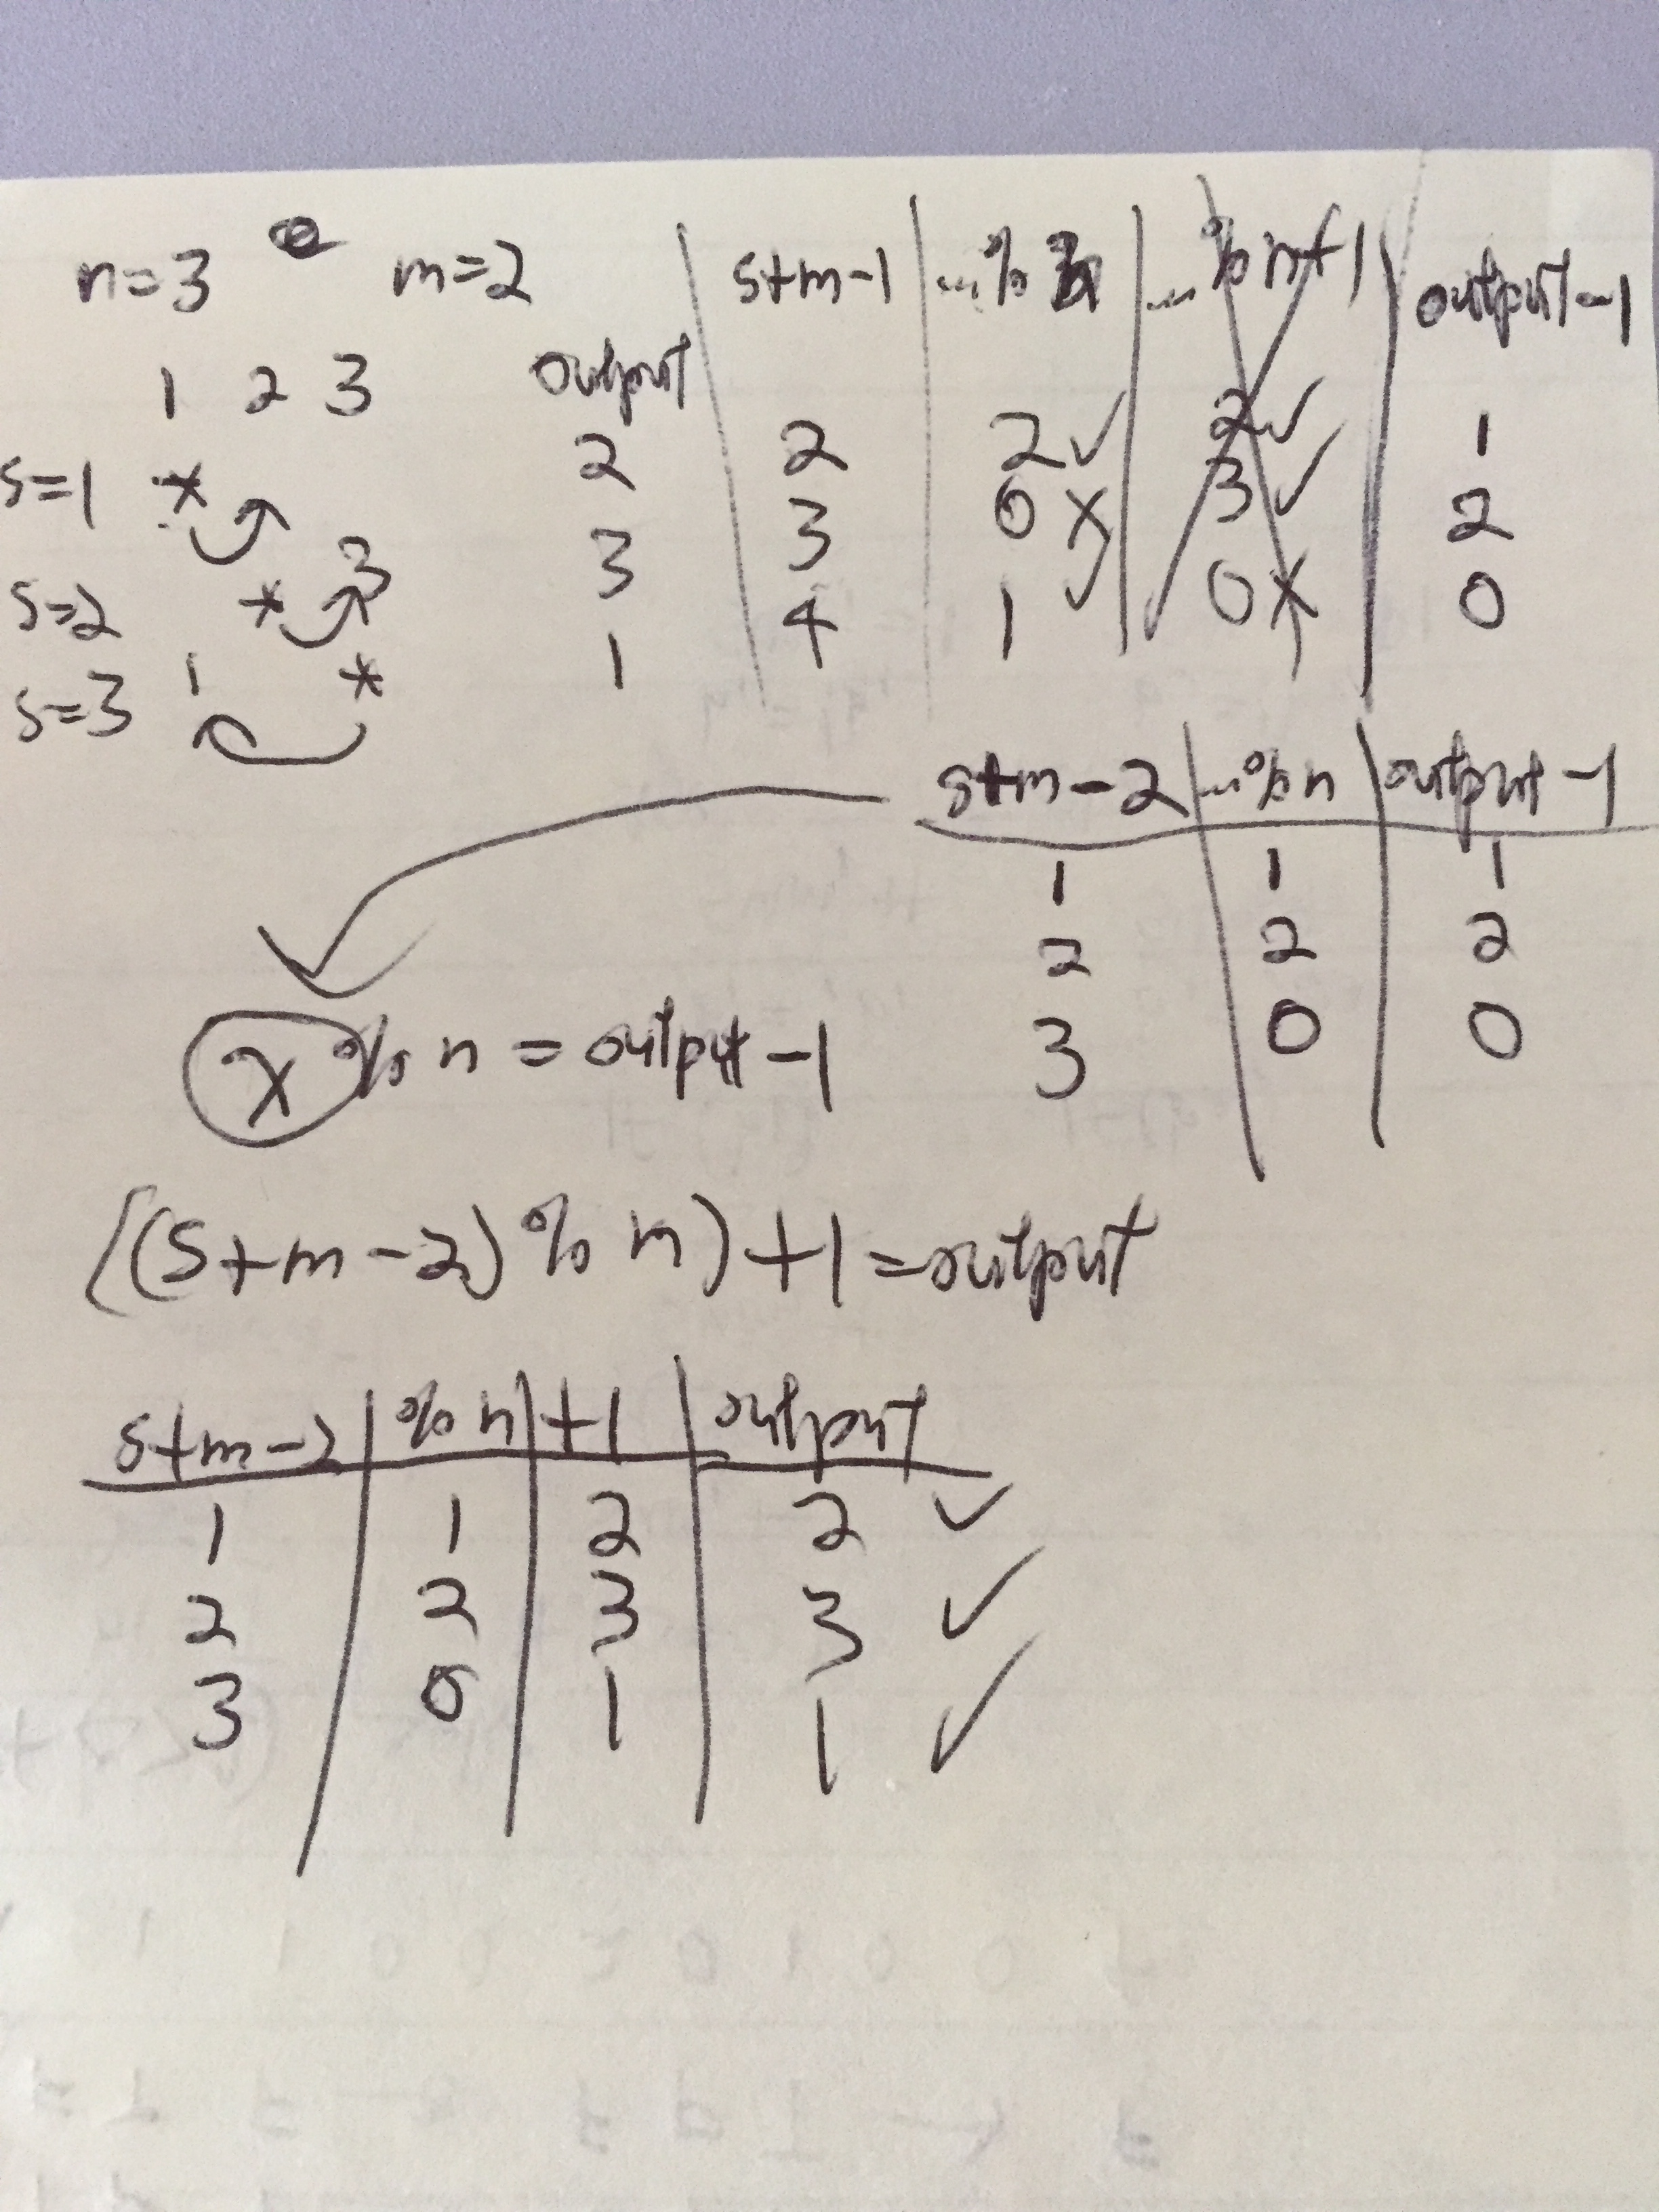 n=3 m=2 s+m-1 ...% n ...% n+1 output-1
1 2 3 output
s=1 * 2 2 2 ✓ 2 ✓ 1
s=2 * 3 3 3 0 x 3 ✓ 2
s=3 1 * 1 4 1 ✓ 0 x 0
s+m-2 ...% n output-1
1 1 1
2 2 2
3 0 0
x % n = output-1
((s+m-2) % n)+1=output
s+m-2 % n +1 output
1 1 2 2 ✓
2 2 3 3 ✓
3 0 1 1 ✓